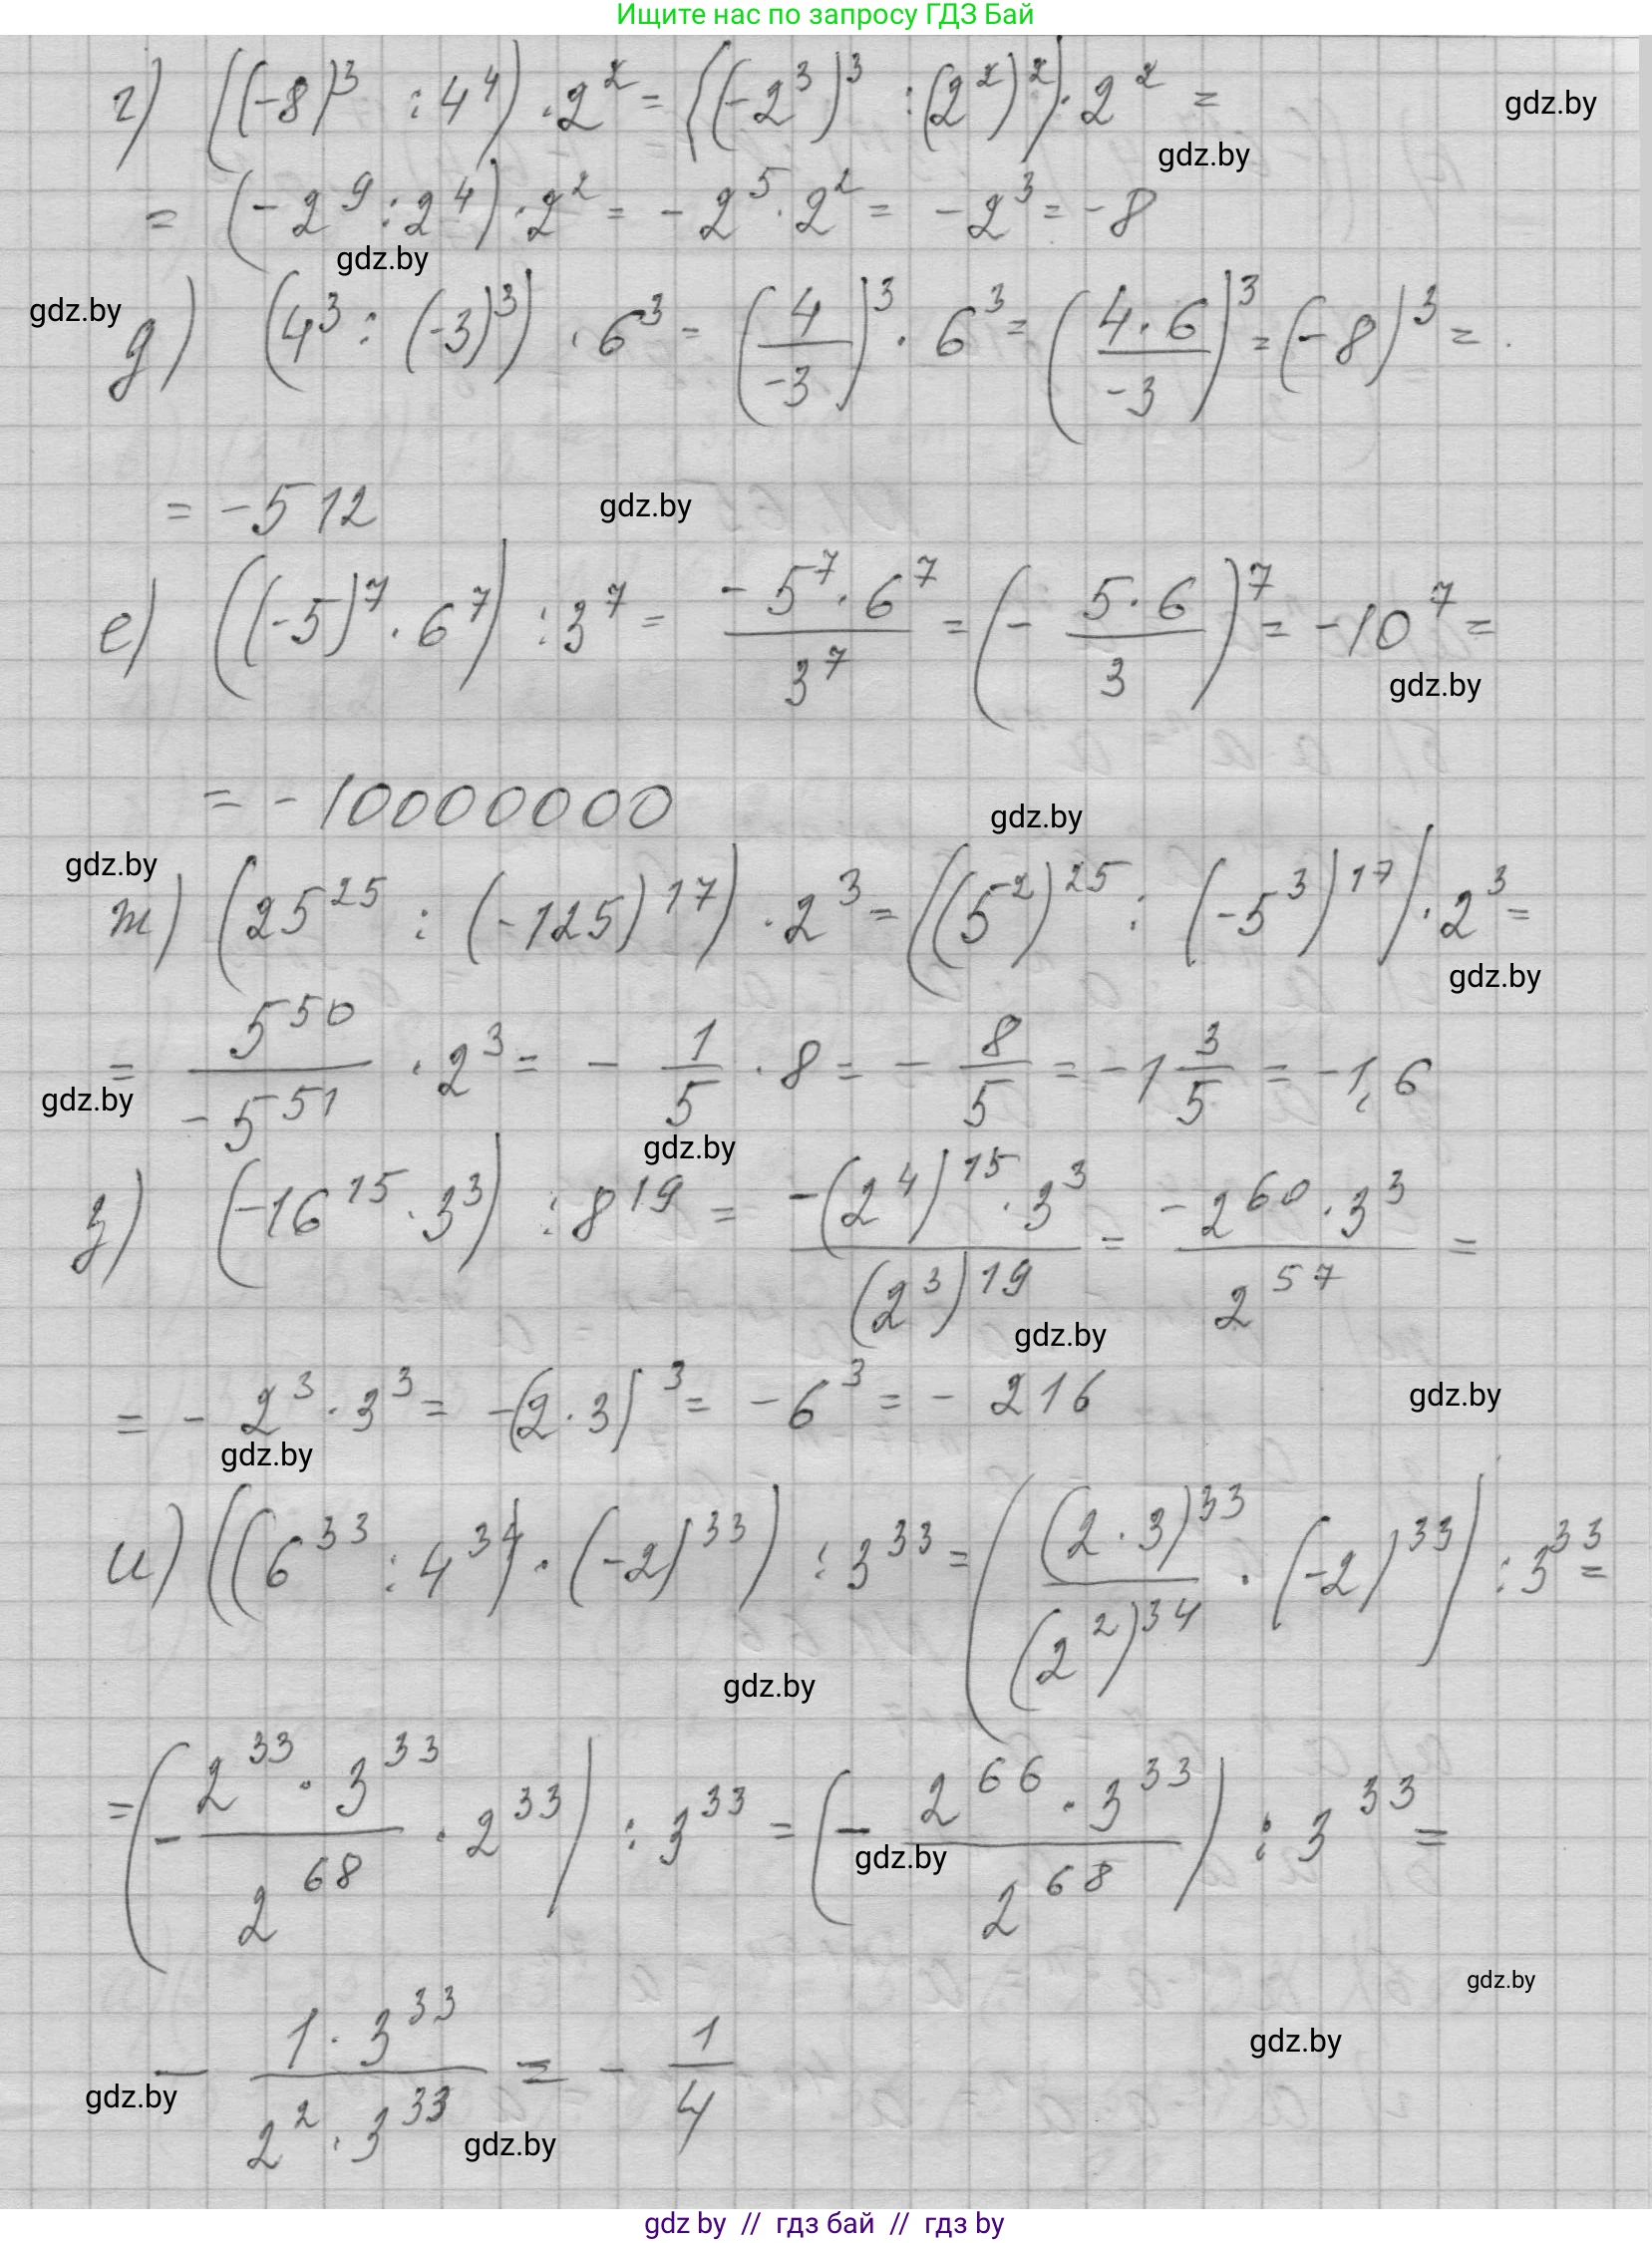 Ищите нас по запросу ГДЗ Бай
г) ((-8)³ : 4⁴) · 2² = ((-2³)³ : (2²)²) · 2² =
gdz.by
gdz.by
= (-2⁹ : 2⁴) · 2² = -2⁵ · 2² = -2³ = -8
gdz.by
gdz.by
д) (4³ : (-3)³) · 6³ = (4/-3)³ · 6³ = (4·6/-3)³ = (-8)³ =
= -512
gdz.by
е) ((-5)⁷ · 6⁷) : 3⁷ = -5⁷·6⁷/3⁷ = (- 5·6/3)⁷ = -10⁷ =
gdz.by
= -10000000
gdz.by
gdz.by
ж) (25²⁵ : (-125)¹⁷) · 2³ = ((5²)²⁵ : (-5³)¹⁷) · 2³ =
gdz.by
= 5⁵⁰/-5⁵¹ · 2³ = - 1/5 · 8 = - 8/5 = -1 3/5 = -1,6
gdz.by
gdz.by
з) (-16¹⁵ · 3³) : 8¹⁹ = -(2⁴)¹⁵ · 3³/(2³)¹⁹ = -2⁶⁰ · 3³/2⁵⁷ =
gdz.by
= - 2³ · 3³ = -(2·3)³ = -6³ = - 216
gdz.by
gdz.by
и) ((6³³ : 4³⁴) · (-2)³³) : 3³³ = ((2·3)³³/(2²)³⁴ · (-2)³³) : 3³³ =
gdz.by
= (- 2³³ · 3³³/2⁶⁸ · 2³³) : 3³³ = (- 2⁶⁶ · 3³³/2⁶⁸) : 3³³ =
gdz.by
gdz.by
- 1 · 3³³/2² · 3³³ = - 1/4
gdz.by
gdz.by
gdz.by
gdz by // гдз бай // гдз by